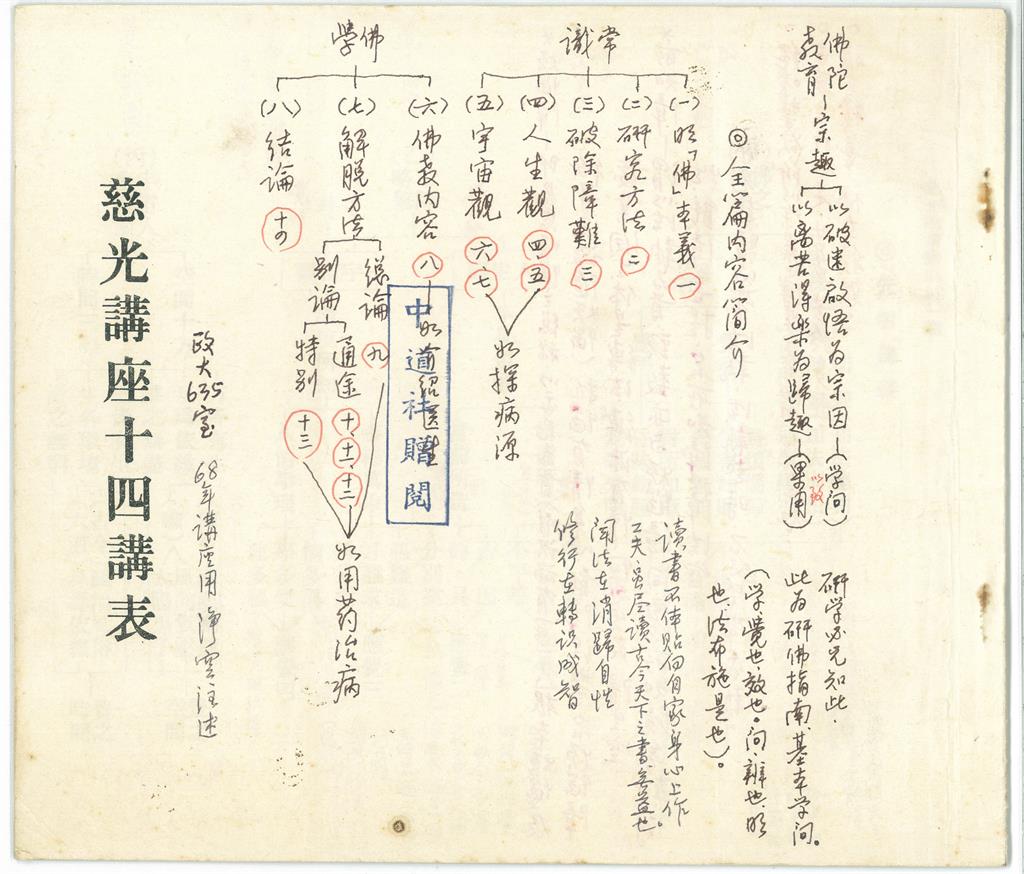 佛陀教育—宗趣
以破迷啟悟為宗因—(学问)
以离苦得樂為歸趣—(果用)
以致
研学必先知此.
此為研佛指南.基本学问。
(学,覺也,效也。问,辨也,明
也.法布施是也)。
◎全篇内容简介
读書不体贴向自家身心上作
工夫,虽尽读古今天下之書無益也。
闻法在消歸自性
修行在轉识成智
常識
(一)明「佛」本義 一
(二)研究方法 二
(三)破除障難 三
(四)人生觀 四、五
(五)宇宙觀 六、七
如探病源
佛學
(六)佛教内容 八
如介紹医生
(七)解脱方法
總論 九
别論
通途 十、十一、十二
特别 十三
如用药治病
(八)结論 十四
中道社贈閲
政大635室 68年講座用 淨空注述
慈光講座十四講表